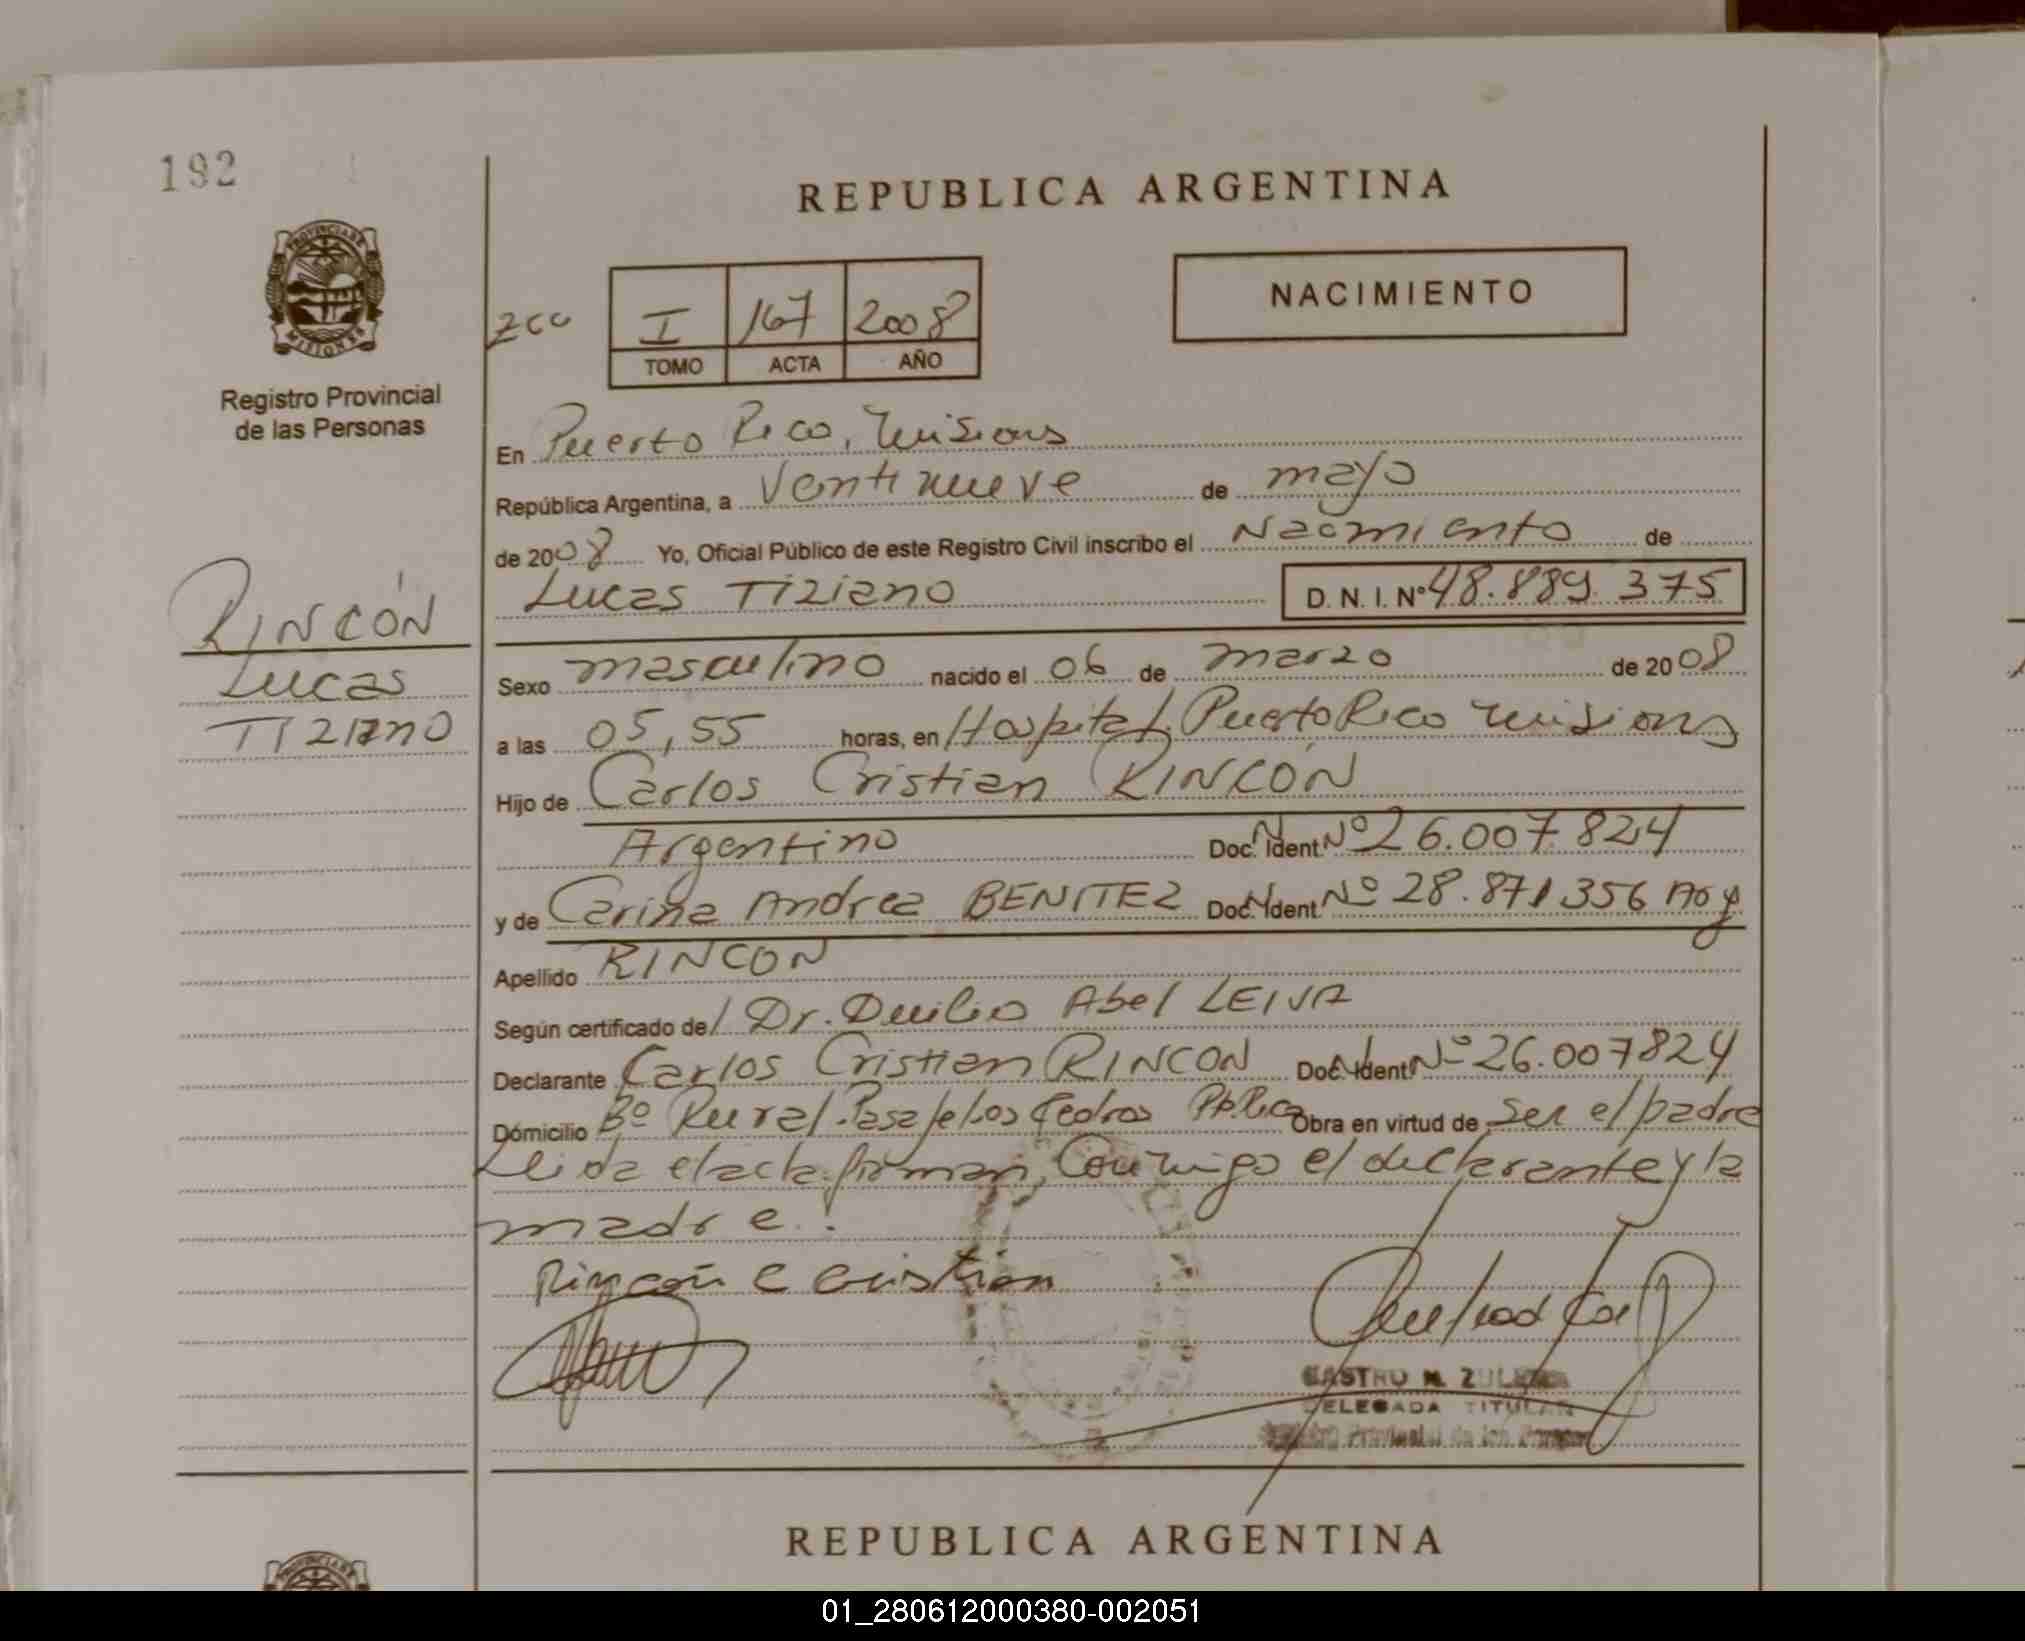 192
REPUBLICA ARGENTINA
PROVINCIA DE
MISIONES
Registro Provincial
de las Personas
NACIMIENTO
I 167 2008
TOMO ACTA AÑO
En Puerto Rico, Misiones
República Argentina, a Ventinueve de mayo
de 2008 Yo, Oficial Público de este Registro Civil inscribo el Nacimiento de
Lucas Tiziano D.N.I. Nº 48.889.375
RINCÓN
Lucas
Tiziano
Sexo masculino nacido el 06 de marzo de 2008
a las 05,55 horas, en Hospital Puerto Rico Misiones
Hijo de Carlos Cristian RINCÓN
Argentino Doc. Ident. Nº 26.007.824
y de Carina Andrea BENITEZ Doc. Ident. Nº 28.871.356
Apellido RINCON
Según certificado del Dr. Duilio Abel LEIVA
Declarante Carlos Cristian RINCON Doc. Ident. Nº 26.007824
Domicilio Bº Rural Pasaje Los Cedros Pto. Rico Obra en virtud de ser el padre
Leida el acta firman, Conmigo el declarante y la
madre.
Rincon C Cristian
CASTRO M. ZULEMA
DELEGADA TITULAR
Registro Provincial de las Personas
REPUBLICA ARGENTINA
01_280612000380-002051